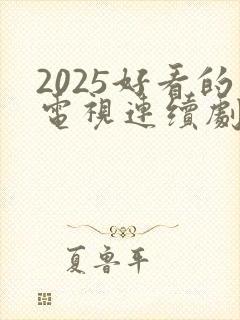 2025好看的
電視連續劇
夏鲁平